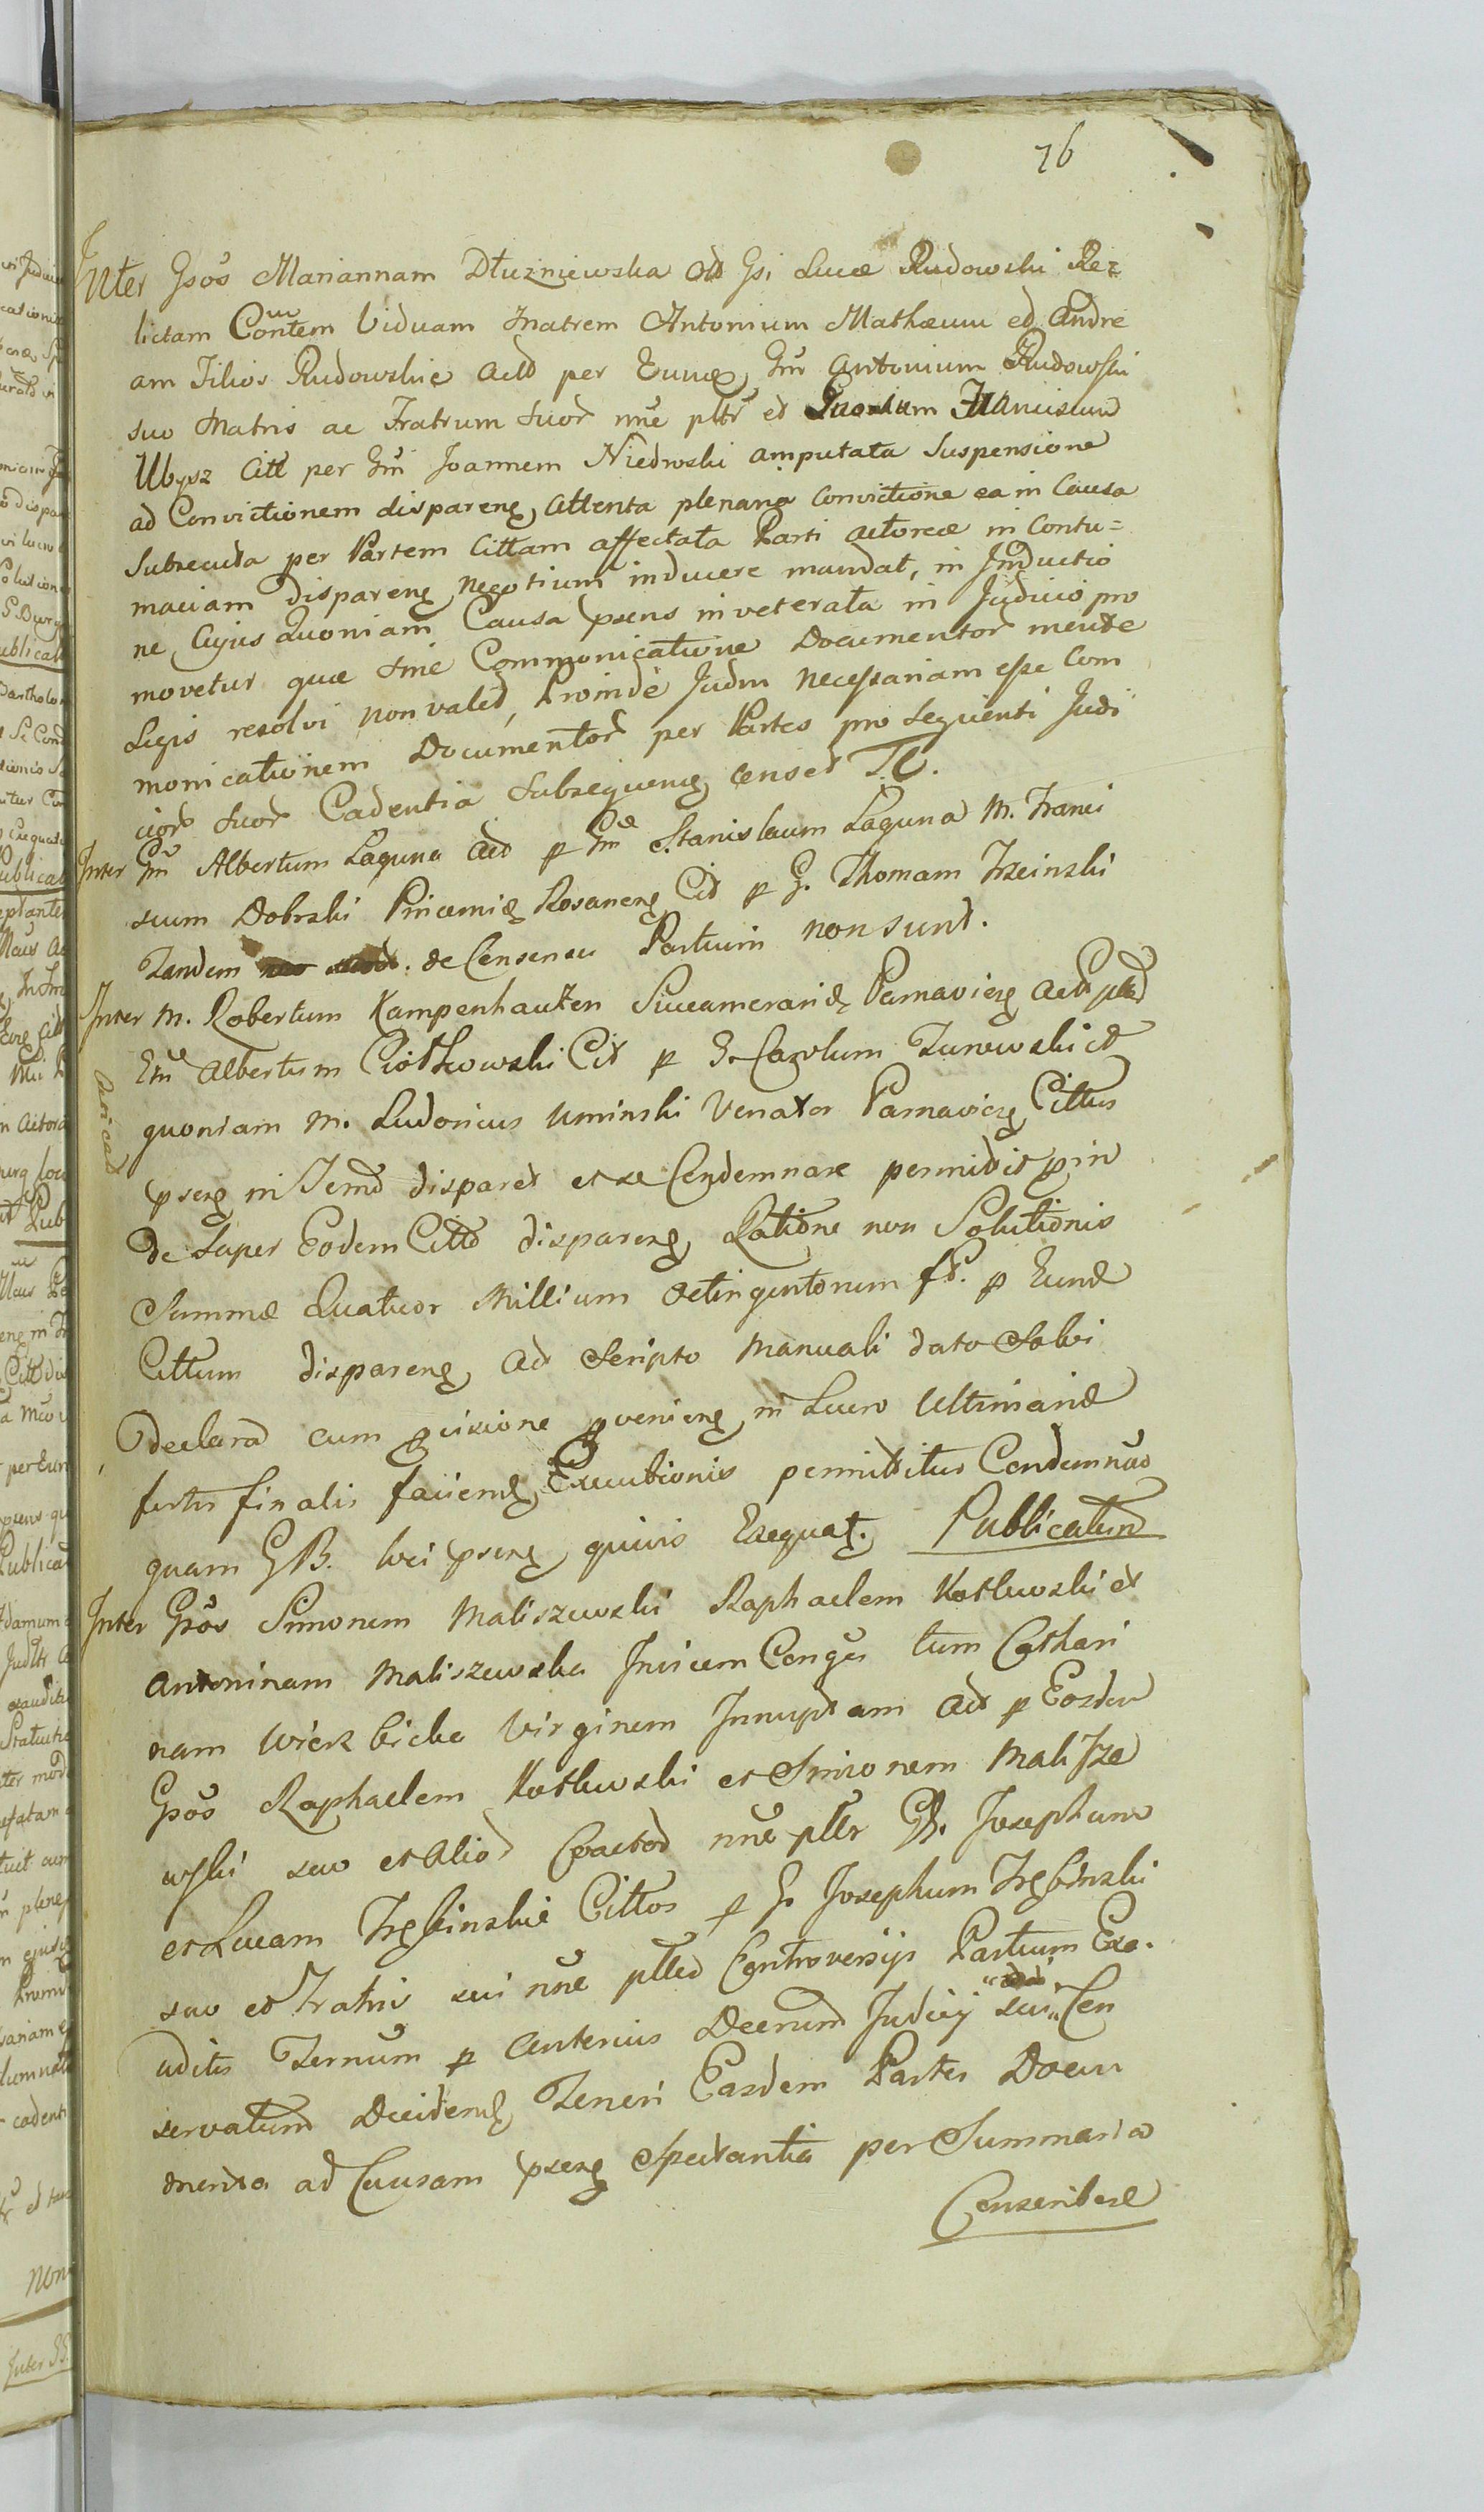 76
Inter Gsos Mariannam Dłużniewska olt Gsi Lucæ Rudowski Re=
lictam Contem Viduam Matrem Antonium Mathæum ed Andre
am Filios Rudowskie actt per Eunde Gm Antonium Rudowski
suo Matris ac Fratrum suor nne pltr et Franciscum
Ubysz Citt per Gm Joannem Niedroski amputata Suspensione
ad Convictionem disparens, attenta plenaria Convictione ea in Causa
subsecuta per Partem Cittam affectata Parti actoreæ in Contu=
maciam disparens negotium inducere mandat, in Inductio
ne Cujus Quoniam Causa psens inveterata in Judicio pro
movetur quæ sine Commonicatione Documentor mente
Legis resolvi non valet, Proinde Judm necessariam esse Com
monicationem Documentor per Partes pro sequenti Judi
cior suor Cadentia subsequens censet T.C.
Inter Gm Albertum Laguna act p Gm Stanislaum Laguna M. Franci
scum Dobrski Pincernis Rosanens Cit p G. Thomam Trzcinski
Tandem de Consensu Partium non sunt.
Inter M. Robertum Kampenhauzen Succamerarie Parnaviens act pltd
Gm Albertum Ciotkowski Cit p G. Carolum Turowski et
quoniam M. Ludovicus Uminski Venator Parnaviens Cittus
psens in Termo disparet et se Condemnare permittit proin
de super Eodem Citto disparens, Ratione non Solutionis
Summæ Quatuor Millium Octingentorum fl. p Eund
Cittum disparens, ad Scripto Manuali dato Solvi
declarat cum pcisione pveniens in Lucro Ultimarie
fortis finalis faciend Executionis permittitur Condemnao
quam GB. loci psens quivis Exequat. Publicatum
Inter Gsos Simonem Maliszewski Raphaelem Kotłowski et
Antoninam Maliszewska Invicem Conges tum Cathari
nam Wierzbicka Virginem Innuptam act p Eosdem
Gsos Raphaelem Kotłowski et Simonem Malisze
wski suo et Alior Coactor nne pltr GG. Josephum
et Lucam Trębinskie Cittos p G. Josephum Trębinski
suo et Fratris sui nne pltd Controversijs Partium Exa.
uditis Termum p Anterius Decrum Judicij sui Con
servatum Decidend, Teneri Easdem Partes Docu
menta ad Causam psens Spectantia per Summaria
Conscribere